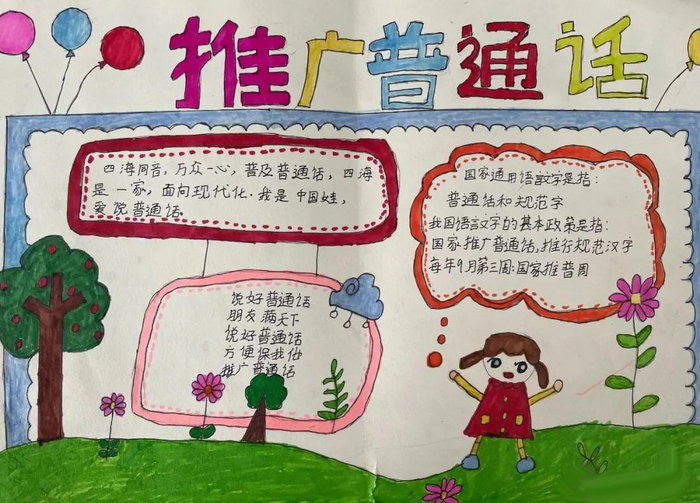 推广普通话
四海同音，万众一心，普及普通话，四海
是一家，面向现代化．我是中国娃，
爱说普通话．
国家通用语言文字是指：
普通话和规范字
我国语言文字的基本政策是指：
国家推广普通话，推行规范汉字
每年9月第三周：国家推普周
说好普通话
朋友满天下
说好普通话
方便你我他
推广普通话